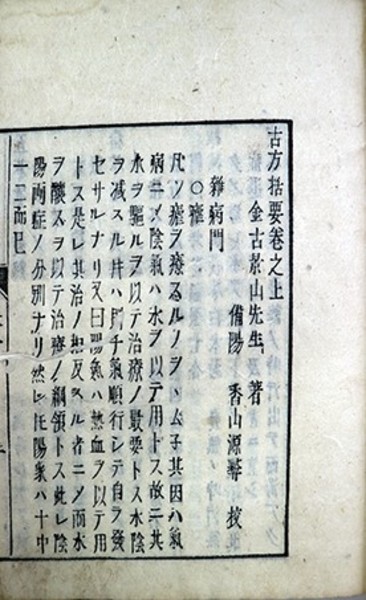 古方括要卷之上
金古景山先生 著
備陽 香山源 挍
雜病門
〇瘧
凡ソ瘧ヲ療スルノソヲハム子其因ハ氣
病ニメ陰氣ハ水ヲ以テ用トス故ニ其
水ヲ驅ルヲ以テ治療ノ最要トス水陰
ヲ减スル片ハ則チ氣順行シテ自ラ發
セサルナリ又曰陽氣ハ熱血ヲ以テ用
トス是レ其治ノ相反スル者ニメ而水
ヲ酸スヲ以テ治療ノ綱領トス此レ陰
陽兩症ノ分别ナリ然レ𪜈陽衆ハ十中
一二而已